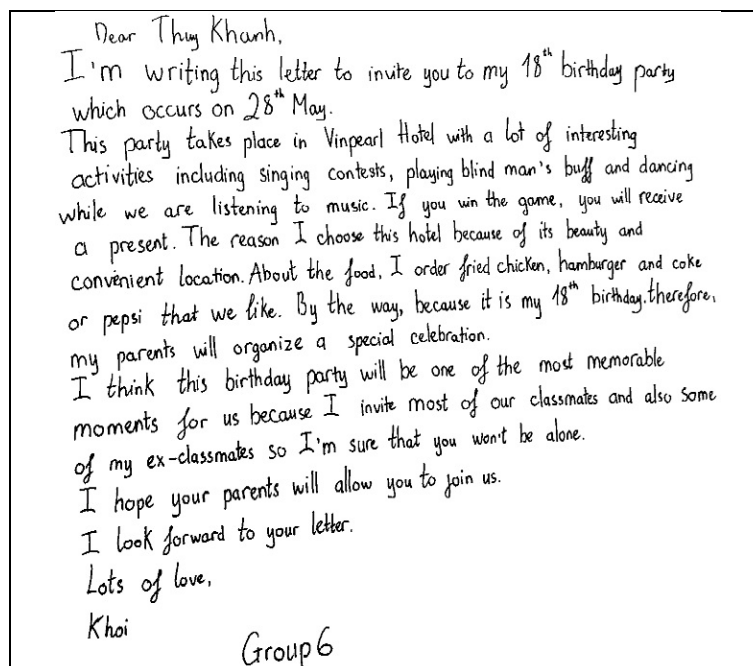 Dear Thuy Khanh,
I'm writing this letter to invite you to my 18th birthday party
which occurs on 28th May.
This party takes place in Vinpearl Hotel with a lot of interesting
activities including singing contests, playing blind man's buff and dancing
while we are listening to music. If you win the game, you will receive
a present. The reason I choose this hotel because of its beauty and
convenient location. About the food, I order fried chicken, hamburger and coke
or pepsi that we like. By the way, because it is my 18th birthday, therefore,
my parents will organize a special celebration.
I think this birthday party will be one of the most memorable
moments for us because I invite most of our classmates and also some
of my ex-classmates so I'm sure that you won't be alone.
I hope your parents will allow you to join us.
I look forward to your letter.
Lots of love,
Khoi
Group 6